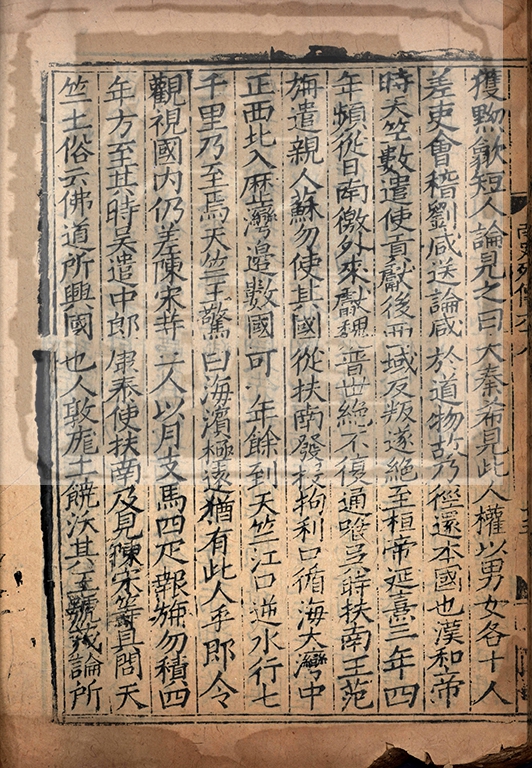 獲黝歙短人論見之曰大秦希見此人權以男女各十人
差吏會稽劉咸送論咸於道物故乃徑還本國也漢和帝
時天竺數遣使貢獻後西域反叛遂絕至桓帝延熹三年四
年頻從日南徼外來獻魏晉世絕不復通唯吳時扶南王范
旃遣親人蘇勿使其國從扶南發投拘利口循海大灣中
正西北入歷灣邊數國可一年餘到天竺江口逆水行七
千里乃至焉天竺王驚曰海濱極遠猶有此人乎即令
觀視國內仍差陳宋等二人以月支馬四疋報旃勿積四
年方至其時吳遣中郎康泰使扶南及見陳宋等具問天
竺土俗云佛道所興國也人敦厖土饒沃其王號茂論所